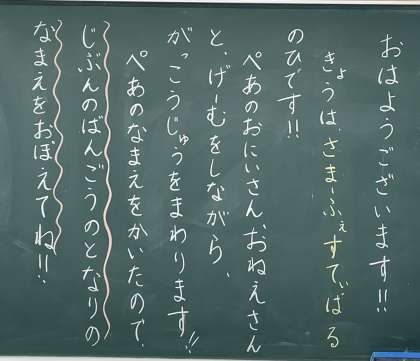 おはようございます!!
きょうは、さまーふぇすてぃばる
のひです!!
ぺあのおにいさん、おねえさん
と、げーむをしながら、
がっこうじゅうをまわります!!
ぺあのなまえをかいたので、
じぶんのばんごうのとなりの
なまえをおぼえてね!!